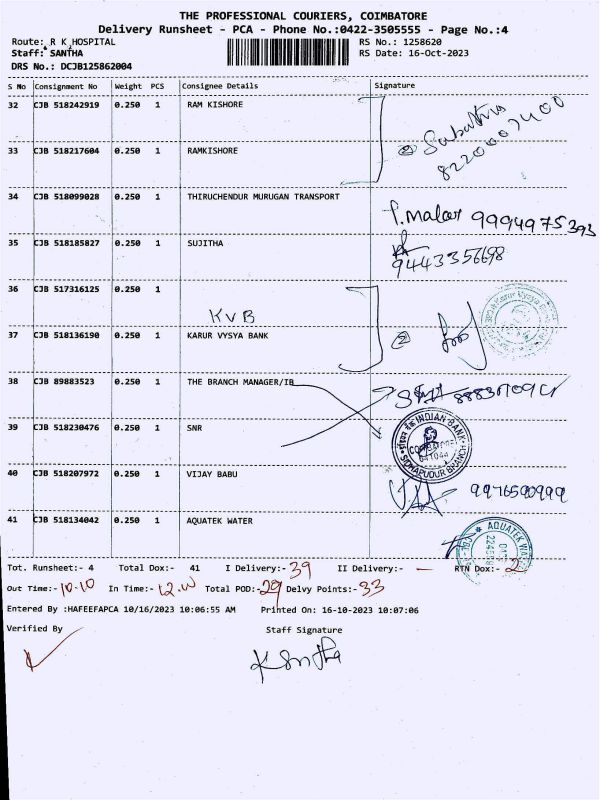 THE PROFESSIONAL COURIERS, COIMBATORE
Delivery Runsheet - PCA - Phone No.:0422-3505555 - Page No.:4
Route: R K HOSPITAL RS No.: 1258620
Staff: SANTHA RS Date: 16-Oct-2023
DRS No.: DCJB125862004
S No Consignment No Weight PCS Consignee Details Signature
32 CJB 518242919 0.250 1 RAM KISHORE
33 CJB 518217604 0.250 1 RAMKISHORE
② 8220007400
34 CJB 518099028 0.250 1 THIRUCHENDUR MURUGAN TRANSPORT
P. Malar 9994975393
35 CJB 518185827 0.250 1 SUJITHA
9443356698
36 CJB 517316125 0.250 1
KVB
37 CJB 518136190 0.250 1 KARUR VYSYA BANK ②
38 CJB 89883523 0.250 1 THE BRANCH MANAGER/IB
39 CJB 518230476 0.250 1 SNR
INDIAN BANK
SIDHAPUDUR BRANCH
641044
40 CJB 518207972 0.250 1 VIJAY BABU
9976590999
41 CJB 518134042 0.250 1 AQUATEK WATER
AQUATEK WATER
Tot. Runsheet:- 4 Total Dox:- 41 I Delivery:- 39 II Delivery:- — RTN Dox:- 2
Out Time:- 10.10 In Time:- Total POD:- 29 Delvy Points:- 33
Entered By :HAFEEFAPCA 10/16/2023 10:06:55 AM Printed On: 16-10-2023 10:07:06
Verified By Staff Signature